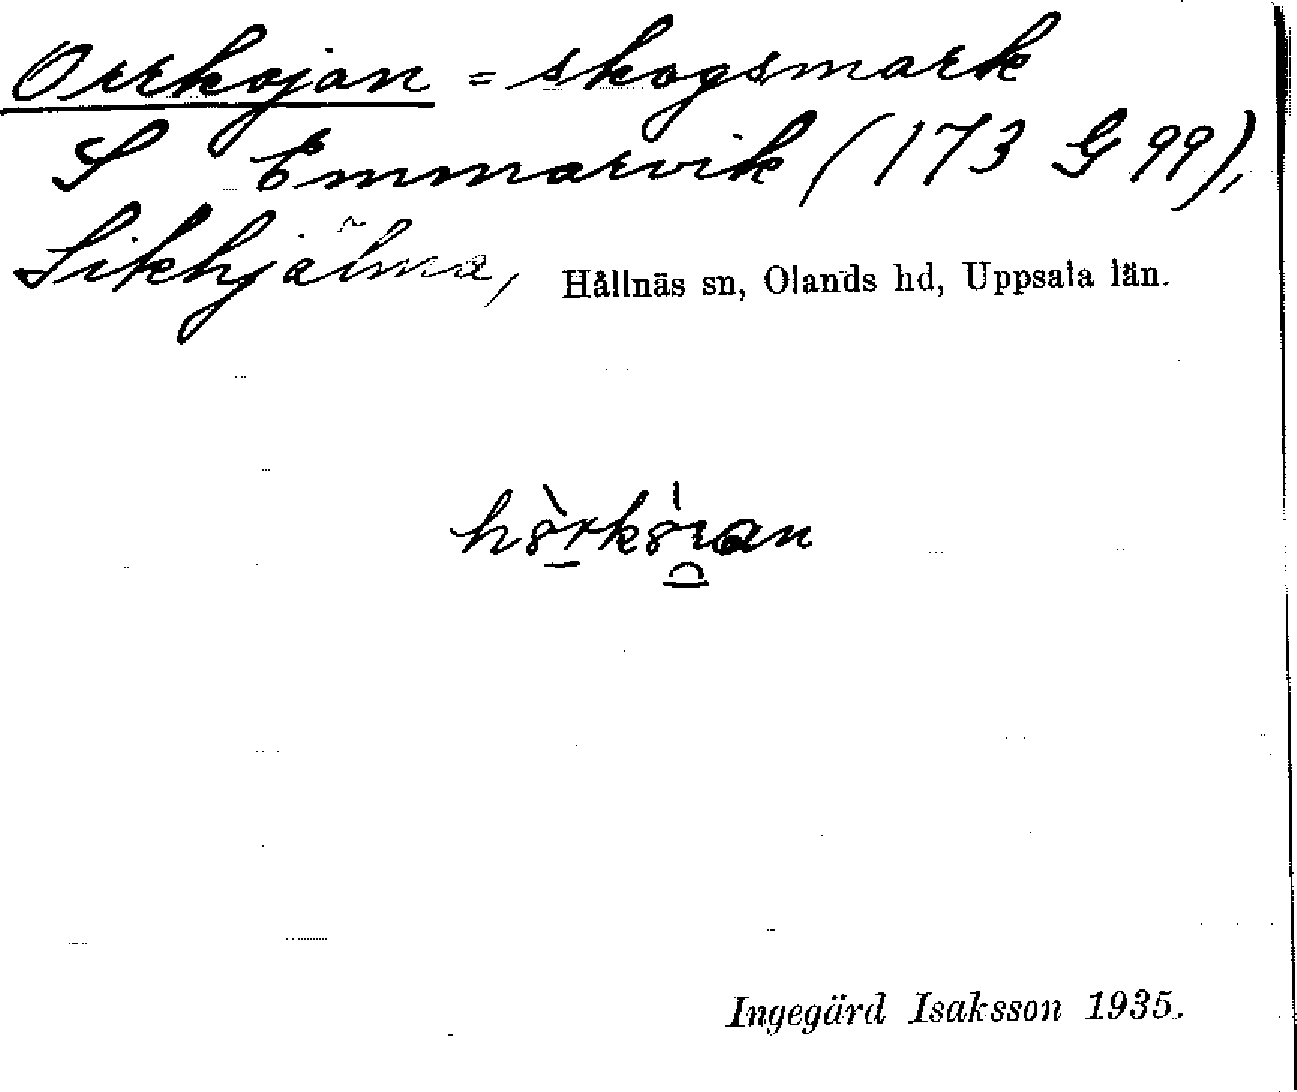 Orrkojan = skogsmark
S Emmarvik (173 G 99),
Sikhjälma, Hållnäs sn, Olands hd, Uppsala län.
Ingegärd Isaksson 1935.